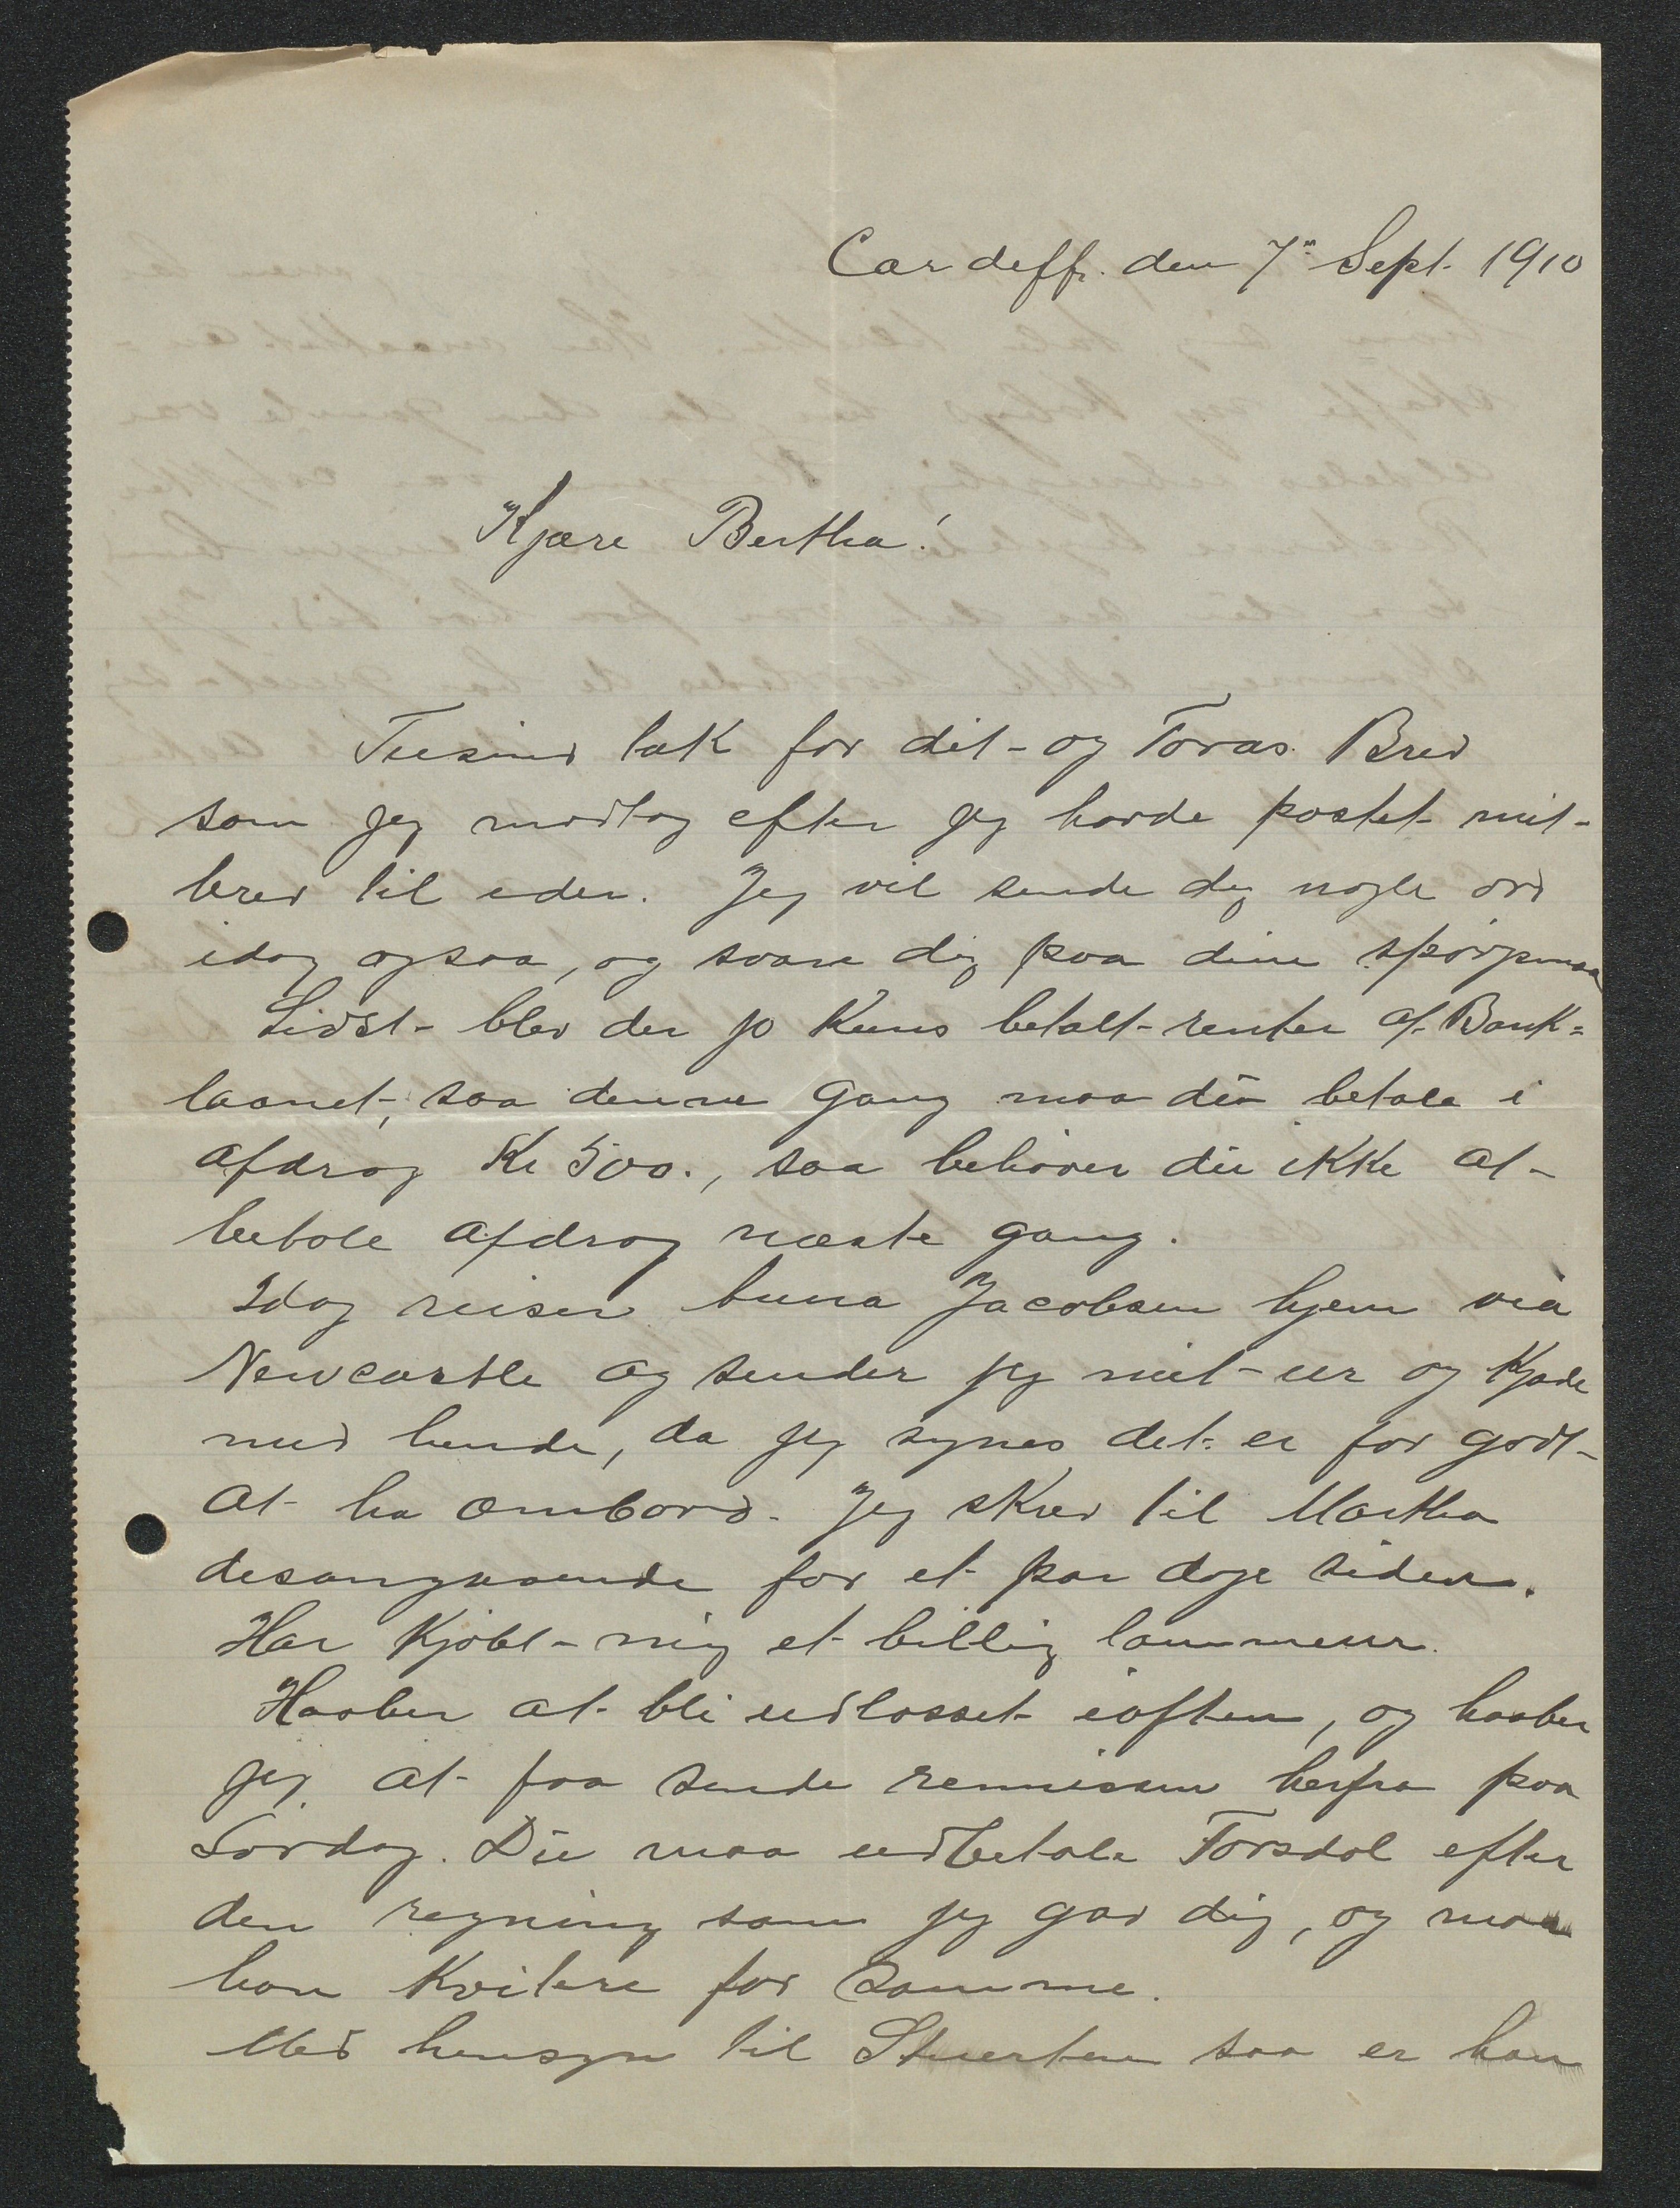 Cardeff. den 7" Sept. 1910
Kjære Bertha!
Tusind tak for dit og Toras Brev
som jeg modtog efter jeg havde postet mit
brev til eder. Jeg vil sende dig nogle ord
idag ogsaa, og svare dig paa dine spørgsmaa
Sidst blev der jo kuns betalt renter af Bank=
laanet, saa denne gang maa du betale i
afdrag Kr 500., saa behøver du ikke at
betale afdrag næste gang.
Idag reiser Jacobsen hjem via
Newcastle og sender jeg mit ur og Kjæde
med hende, da jeg synes det er for godt
at ha ombord. Jeg skrev til Martha
desangaaende for et par dage siden.
Har Kjøbt mig et billig lommeur.
Haaber at bli udlosset iaften, og haaber
jeg at faa sende remissen herfra paa
Lørdag. Du maa udbetale Torsdal efter
den regning som jeg gav dig, og maa
han Kvitere for samme.
Med hensyn til Stuerten saa er han